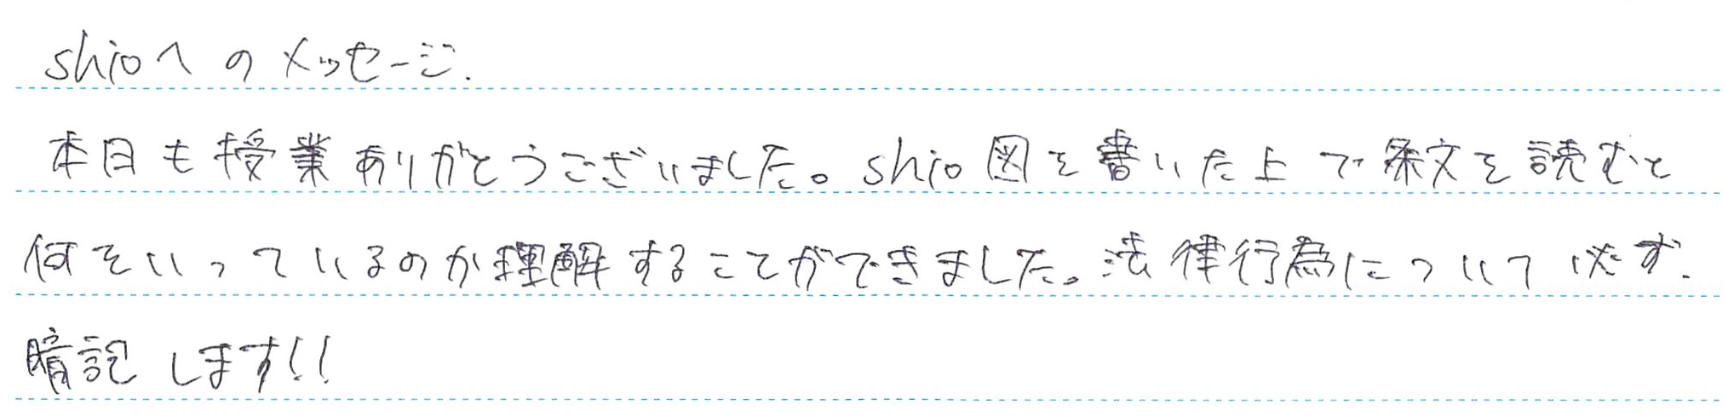 shioへのメッセージ.
本日も授業ありがとうございました。shio図を書いた上で条文を読むと
何をいっているのか理解することができました。法律行為について必ず.
暗記します!!